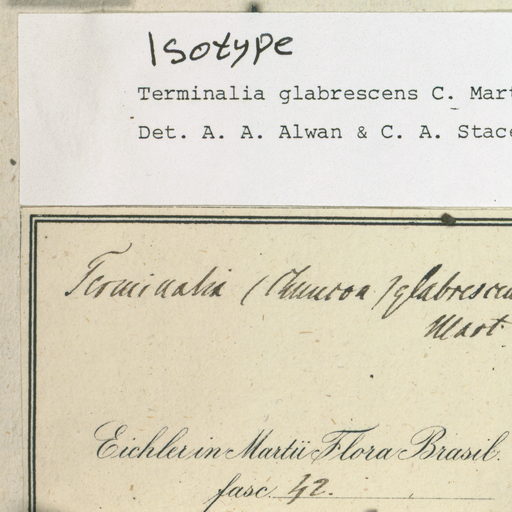 Isotype
Terminalia glabrescens C. Mart
Det. A. A. Alwan & C. A. Stace
Terminalia (Chuncoa) glabrescen
Mart.
Eichler in Martii Flora Brasil.
fasc. 42.